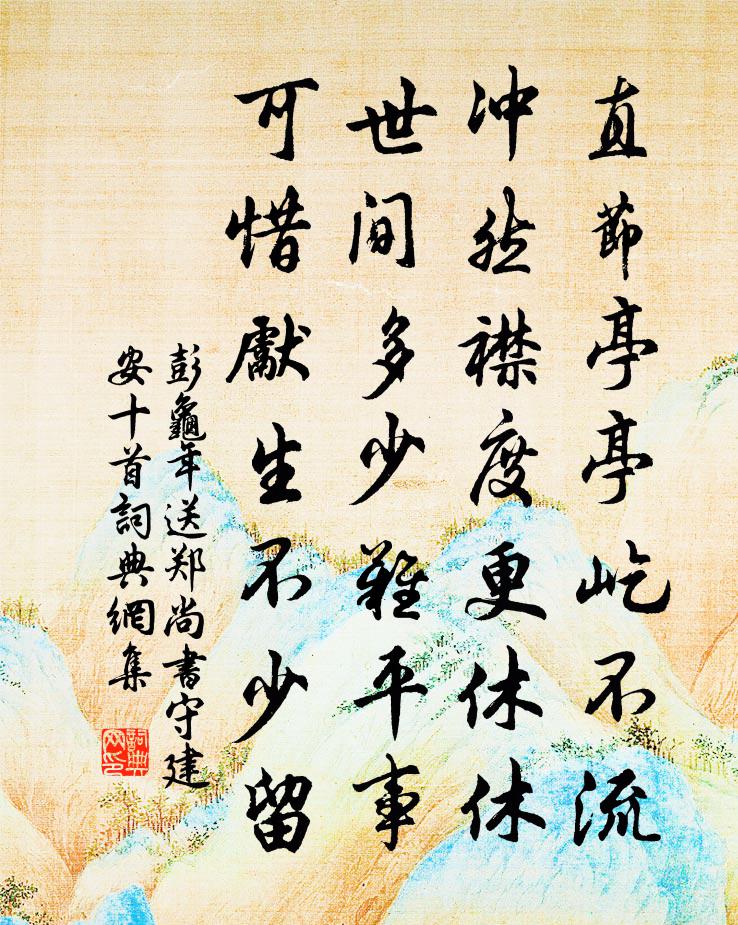 直節亭亭屹不流
冲然襟度更休休
世間多少難平事
可惜獻生不少留
彭龜年送郑尚書守建
安十首詞典網集
詞典
网印